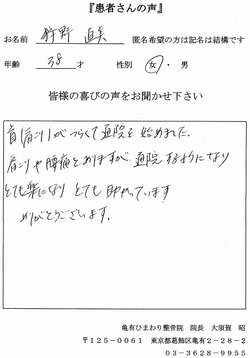 『患者さんの声』
お名前 狩野 直美 匿名希望の方は記名は結構です
年齢 38才 性別 女・男
皆様の喜びの声をお聞かせ下さい
首肩こりがつらくて通院を始めました。
肩こりや腰痛もありますが、通院するようになり
とても楽になり とても助かっています
ありがとうございます。
亀有ひまわり整骨院 院長 大須賀 昭
〒125-0061 東京都葛飾区亀有2-28-2
03-3628-9955